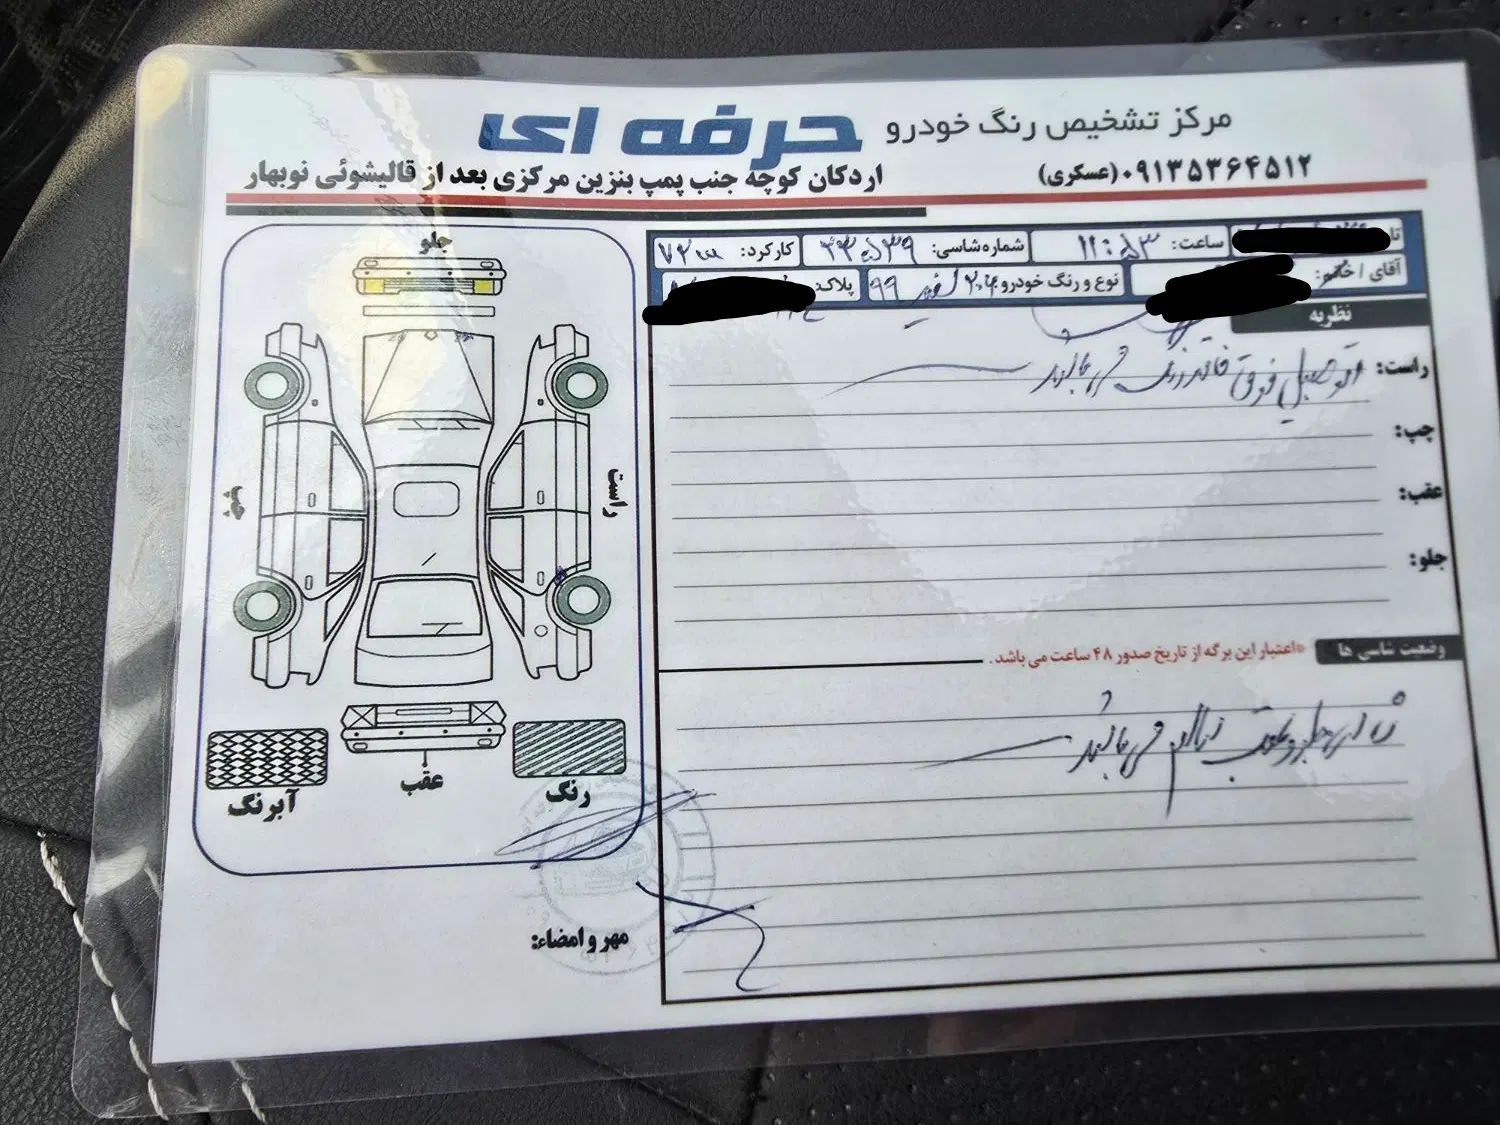 مرکز تشخیص رنگ خودرو حرفه ای
۰۹۱۳۵۳۶۴۵۱۲ (عسکری)
اردکان کوچه جنب پمپ بنزین مرکزی بعد از قالیشوئی نوبهار
ساعت: ۱۱:۵۳
شماره شاسی:
کارکرد:
آقای / خانم:
نوع و رنگ خودرو: ۲۰۶ سفید ۹۹
پلاک:
نظریه
راست: اتومبیل فوق فاقد رنگ می باشد
چپ:
عقب:
جلو:
وضعیت شاسی ها
*اعتبار این برگه از تاریخ صدور ۴۸ ساعت می باشد.
جلو و عقب سالم می باشد
جلو
چپ
راست
عقب
رنگ
آبرنگ
مهر و امضاء: